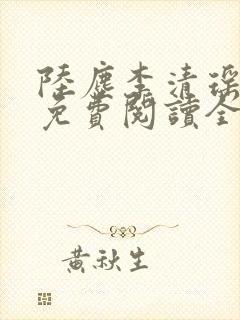 陸塵李清瑤
免費閱讀全
黃秋生